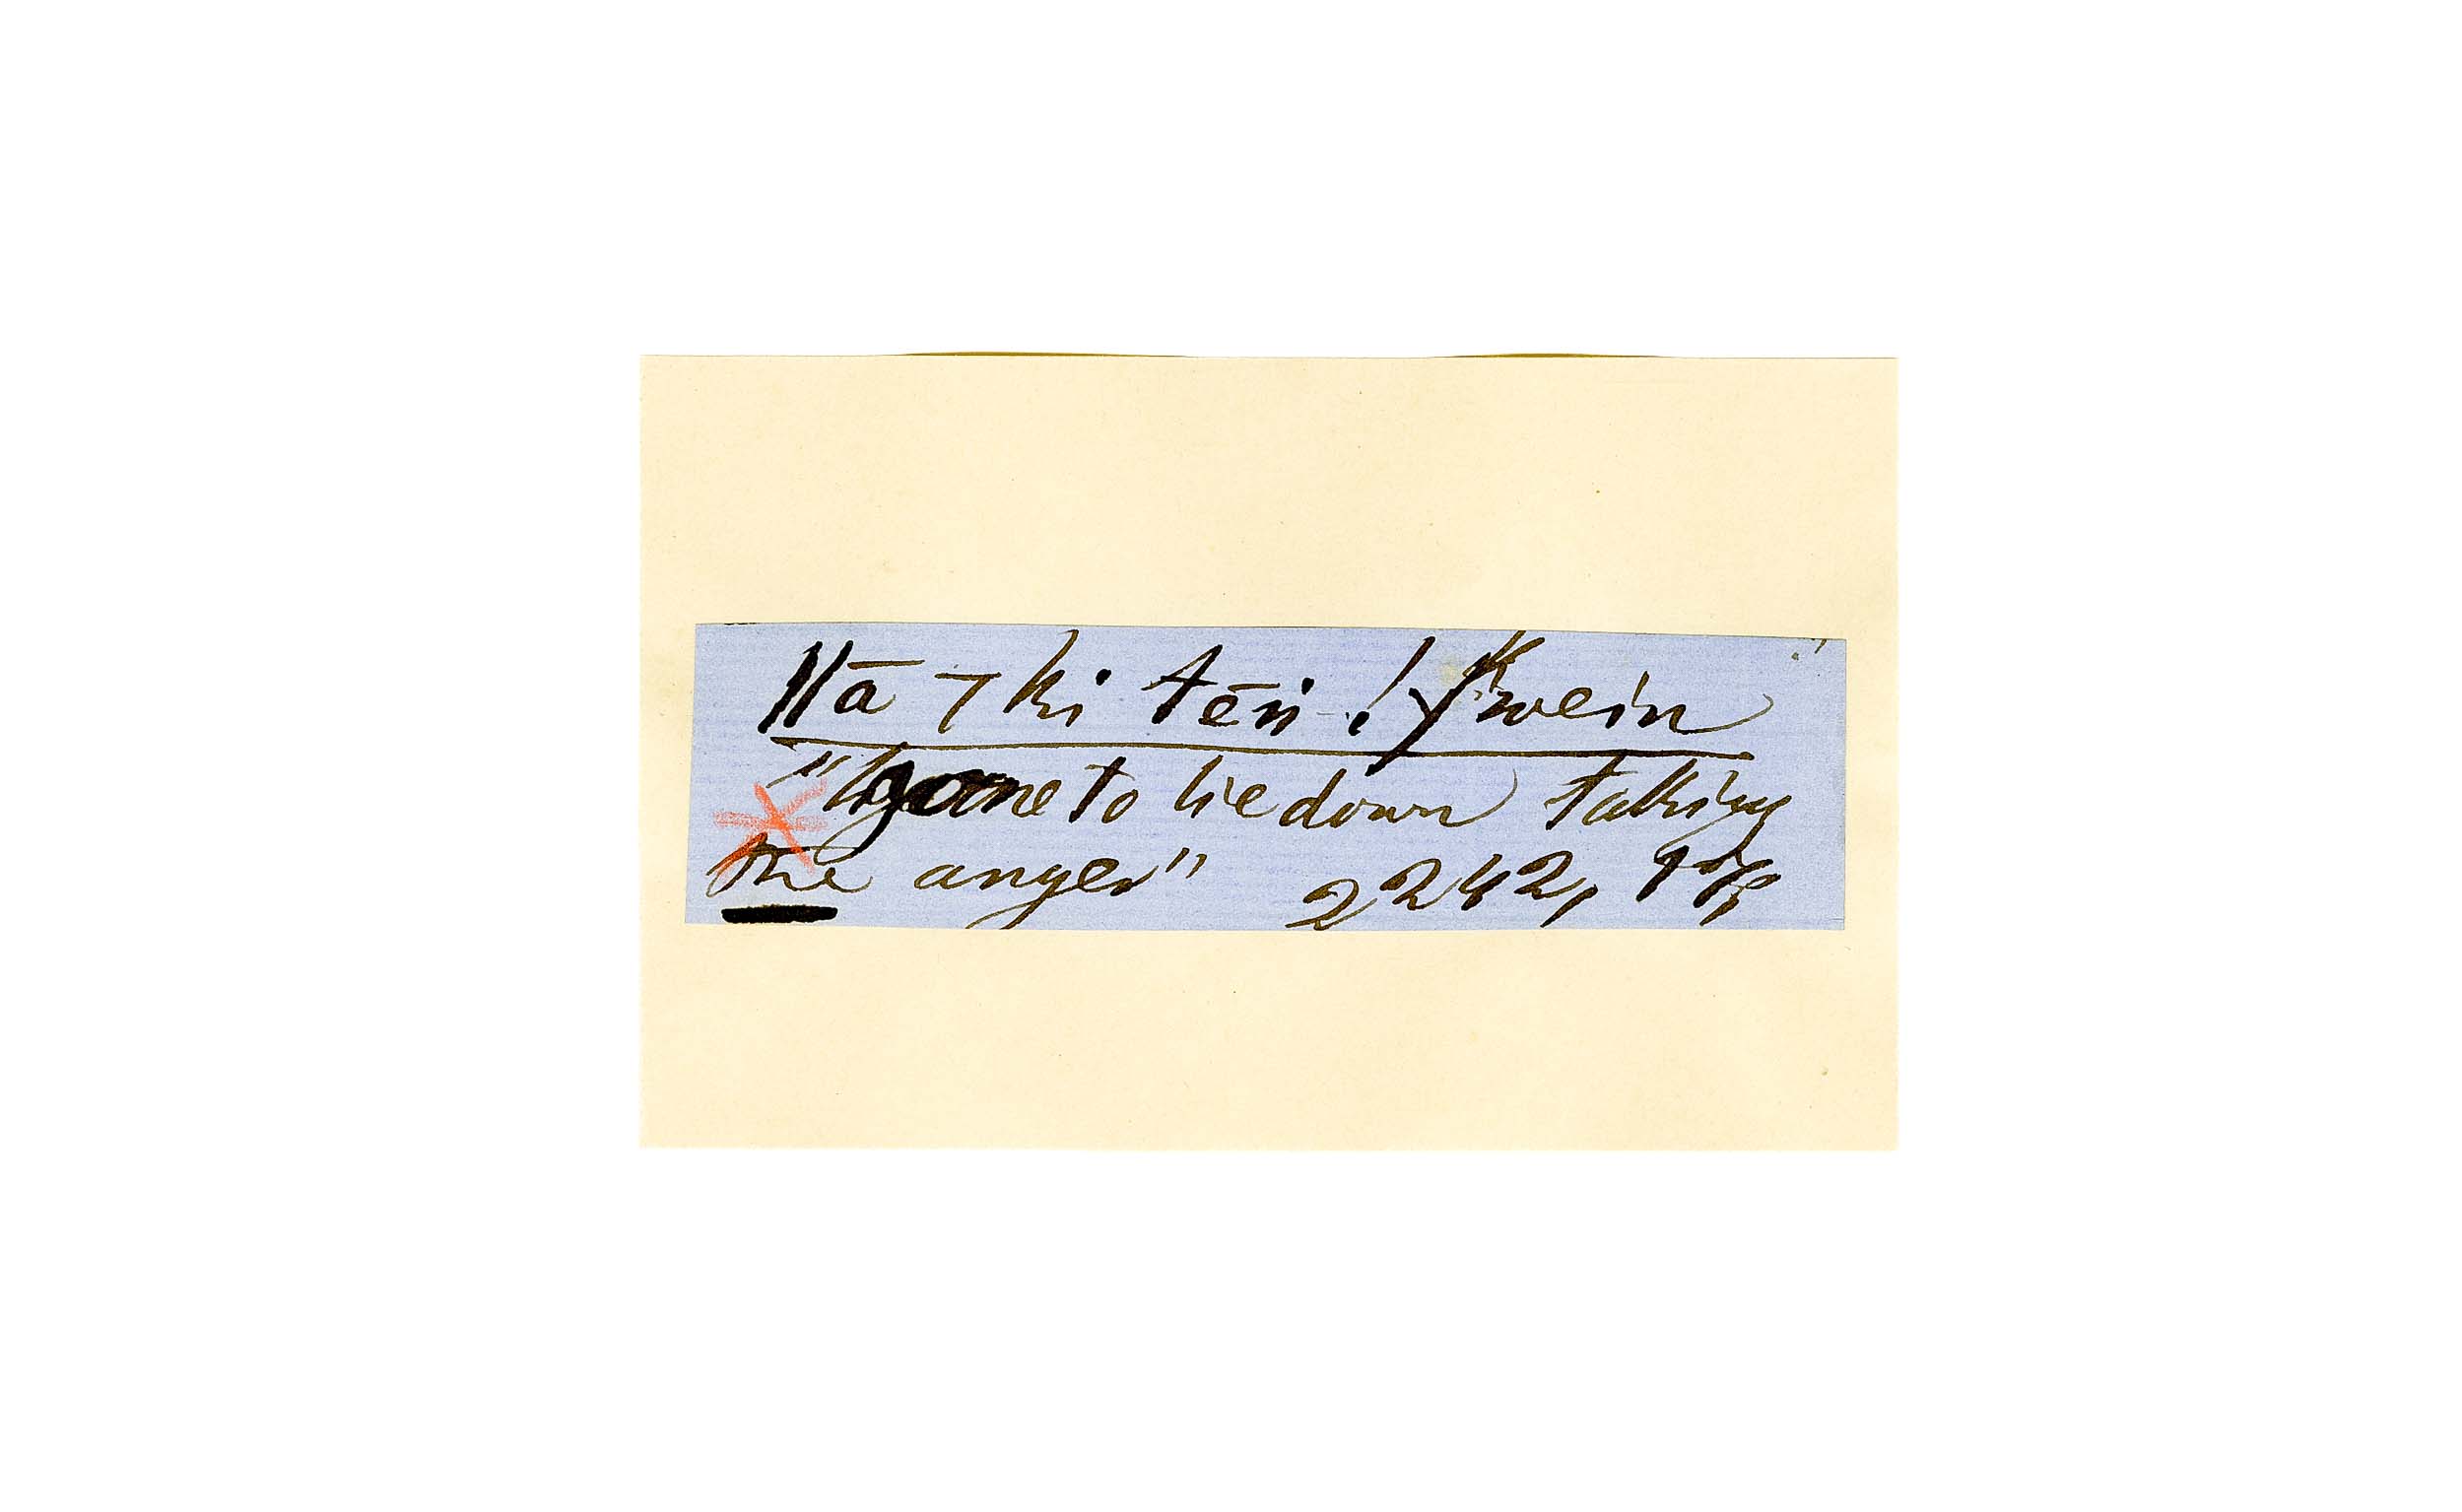 ǁā ⊤ ki tēn ! kwein
"gone to lie down talking
the anger" 2242,